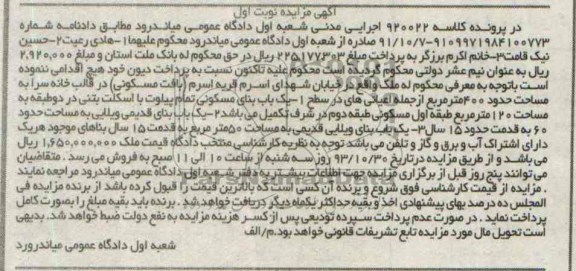 آگهی مزایده نوبت اول
در پرونده کلاسه ۹۲۰۰۲۲ اجرایی مدنی شعبه اول دادگاه عمومی میاندرود مطابق دادنامه شماره
۹۱۰۹۹۷۱۹۸۴۱۰۰۷۷۳-۹۱/۱۰/۷ صادره از شعبه اول دادگاه عمومی میاندرود محکوم علیهما ۱-هادی رعیت ۲-حسین
نیک قامت ۳-خانم اکرم برزگر به پرداخت مبلغ ۲۲۵۱۷۷۳۰۳ ریال در حق محکوم له بانک ملت استان و مبلغ ۲,۹۲۰,۰۰۰
ریال به عنوان نیم عشر دولتی محکوم گردیده است محکوم علیه تاکنون نسبت به پرداخت دیون خود هیچ اقدامی ننموده
است باتوجه به معرفی محکوم له ملک واقع در خیابان شهدای اسرم قریه اسرم (بافت مسکونی) در قالب خانه سرا به
مساحت حدود ۴۰۰مترمربع ازجمله اعیانی های در سطح ۱-یک باب بنای مسکونی تمام پیلوت با اسکلت بتنی در دوطبقه به
مساحت ۱۲۰مترمربع طبقه اول مسکونی طبقه دوم در شرف تکمیل می باشد ۲-یک باب بنای قدیمی ویلایی به مساحت حدود
۶۰ به قدمت حدود ۱۵ سال ۳-یک باب بنای ویلایی قدیمی به مساحت ۵۰متر مربع به قدمت ۱۵ سال بناهای موجود هریک
دارای اشتراک آب و برق و گاز و تلفن می باشد توجه به نظریه کارشناسی منتخب دادگاه قیمت ملک ۱,۶۵۰,۰۰۰,۰۰۰ ریال
می باشد و از طریق مزایده درتاریخ ۹۳/۱۰/۳۰ روز سه شنبه از ساعت ۱۰ الی ۱۱ صبح به فروش می رسد . متقاضیان
می توانند پنج روز قبل از برگزاری مزایده جهت اطلاعات بیشتر به دفتر شعبه اول دادگاه عمومی میاندرود مراجعه نمایند
. مزایده از قیمت کارشناسی فوق شروع و برنده آن کسی است که بالاترین قیمت را قبول کرده باشد از برنده مزایده فی
المجلس ده درصد بهای پیشنهادی اخذ و بقیه حداکثر یکماه دیگر دریافت خواهد شد . برنده باید بقیه مبلغ را بصورت کامل
پرداخت نماید . در صورت عدم پرداخت سپرده تودیعی پس از کسر هزینه مزایده به نفع دولت ضبط خواهد شد. بدیهی
است تحویل مال مورد مزایده تابع تشریفات قانونی خواهد بود.م/الف
شعبه اول دادگاه عمومی میاندرورد